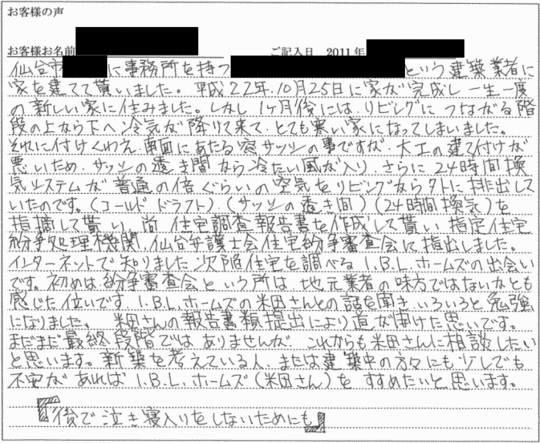 お客様の声
お客様お名前 ご記入日 2011年
仙台市 に事務所を持つ という建築業者に
家を建てて貰いました。平成22年.10月25日に家が完成し一生一度
の新しい家に住みました。しかし1ヶ月後には、リビングにつながる階
段の上から下へ冷気が降りて来て、とても寒い家になってしまいました。
それに付けくわえ、南面にあたる窓サッシの事ですが、大工の建て付けが
悪いため、サッシの透き間から冷たい風が入り、さらに24時間換
気システムが普通の倍ぐらいの空気をリビングから外に排出して
いたのです。(コールドドラフト)(サッシの透き間)(24時間換気)を
指摘して貰い、尚住宅調査報告書を作成して貰い指定住宅
紛争処理機関.仙台弁護士会住宅紛争審査会に指出しました。
インターネットで知りました次陥住宅を調べるI.B.L.ホームズの出会い
です。初めは紛争審査会という所は、地元業者の味方ではないかとも
感じた位いです。I.B.L.ホームズの米田さんとの話を聞きいろいろと勉強
になりました。米田さんの報告書類提出により道が開けた思いです。
まだまだ最終段階ではありませんが、これからも米田さんに相談したい
と思います。新築を考えている人、または建築中の方々にも少しでも
不安があればI.B.L.ホームズ(米田さん)をすすめたいと思います。
『後で泣き寝入りをしないためにも』